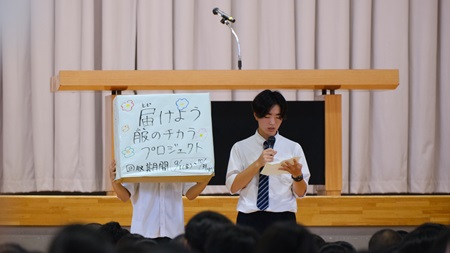 届けよう
服のチカラ
プロジェクト
回収期間